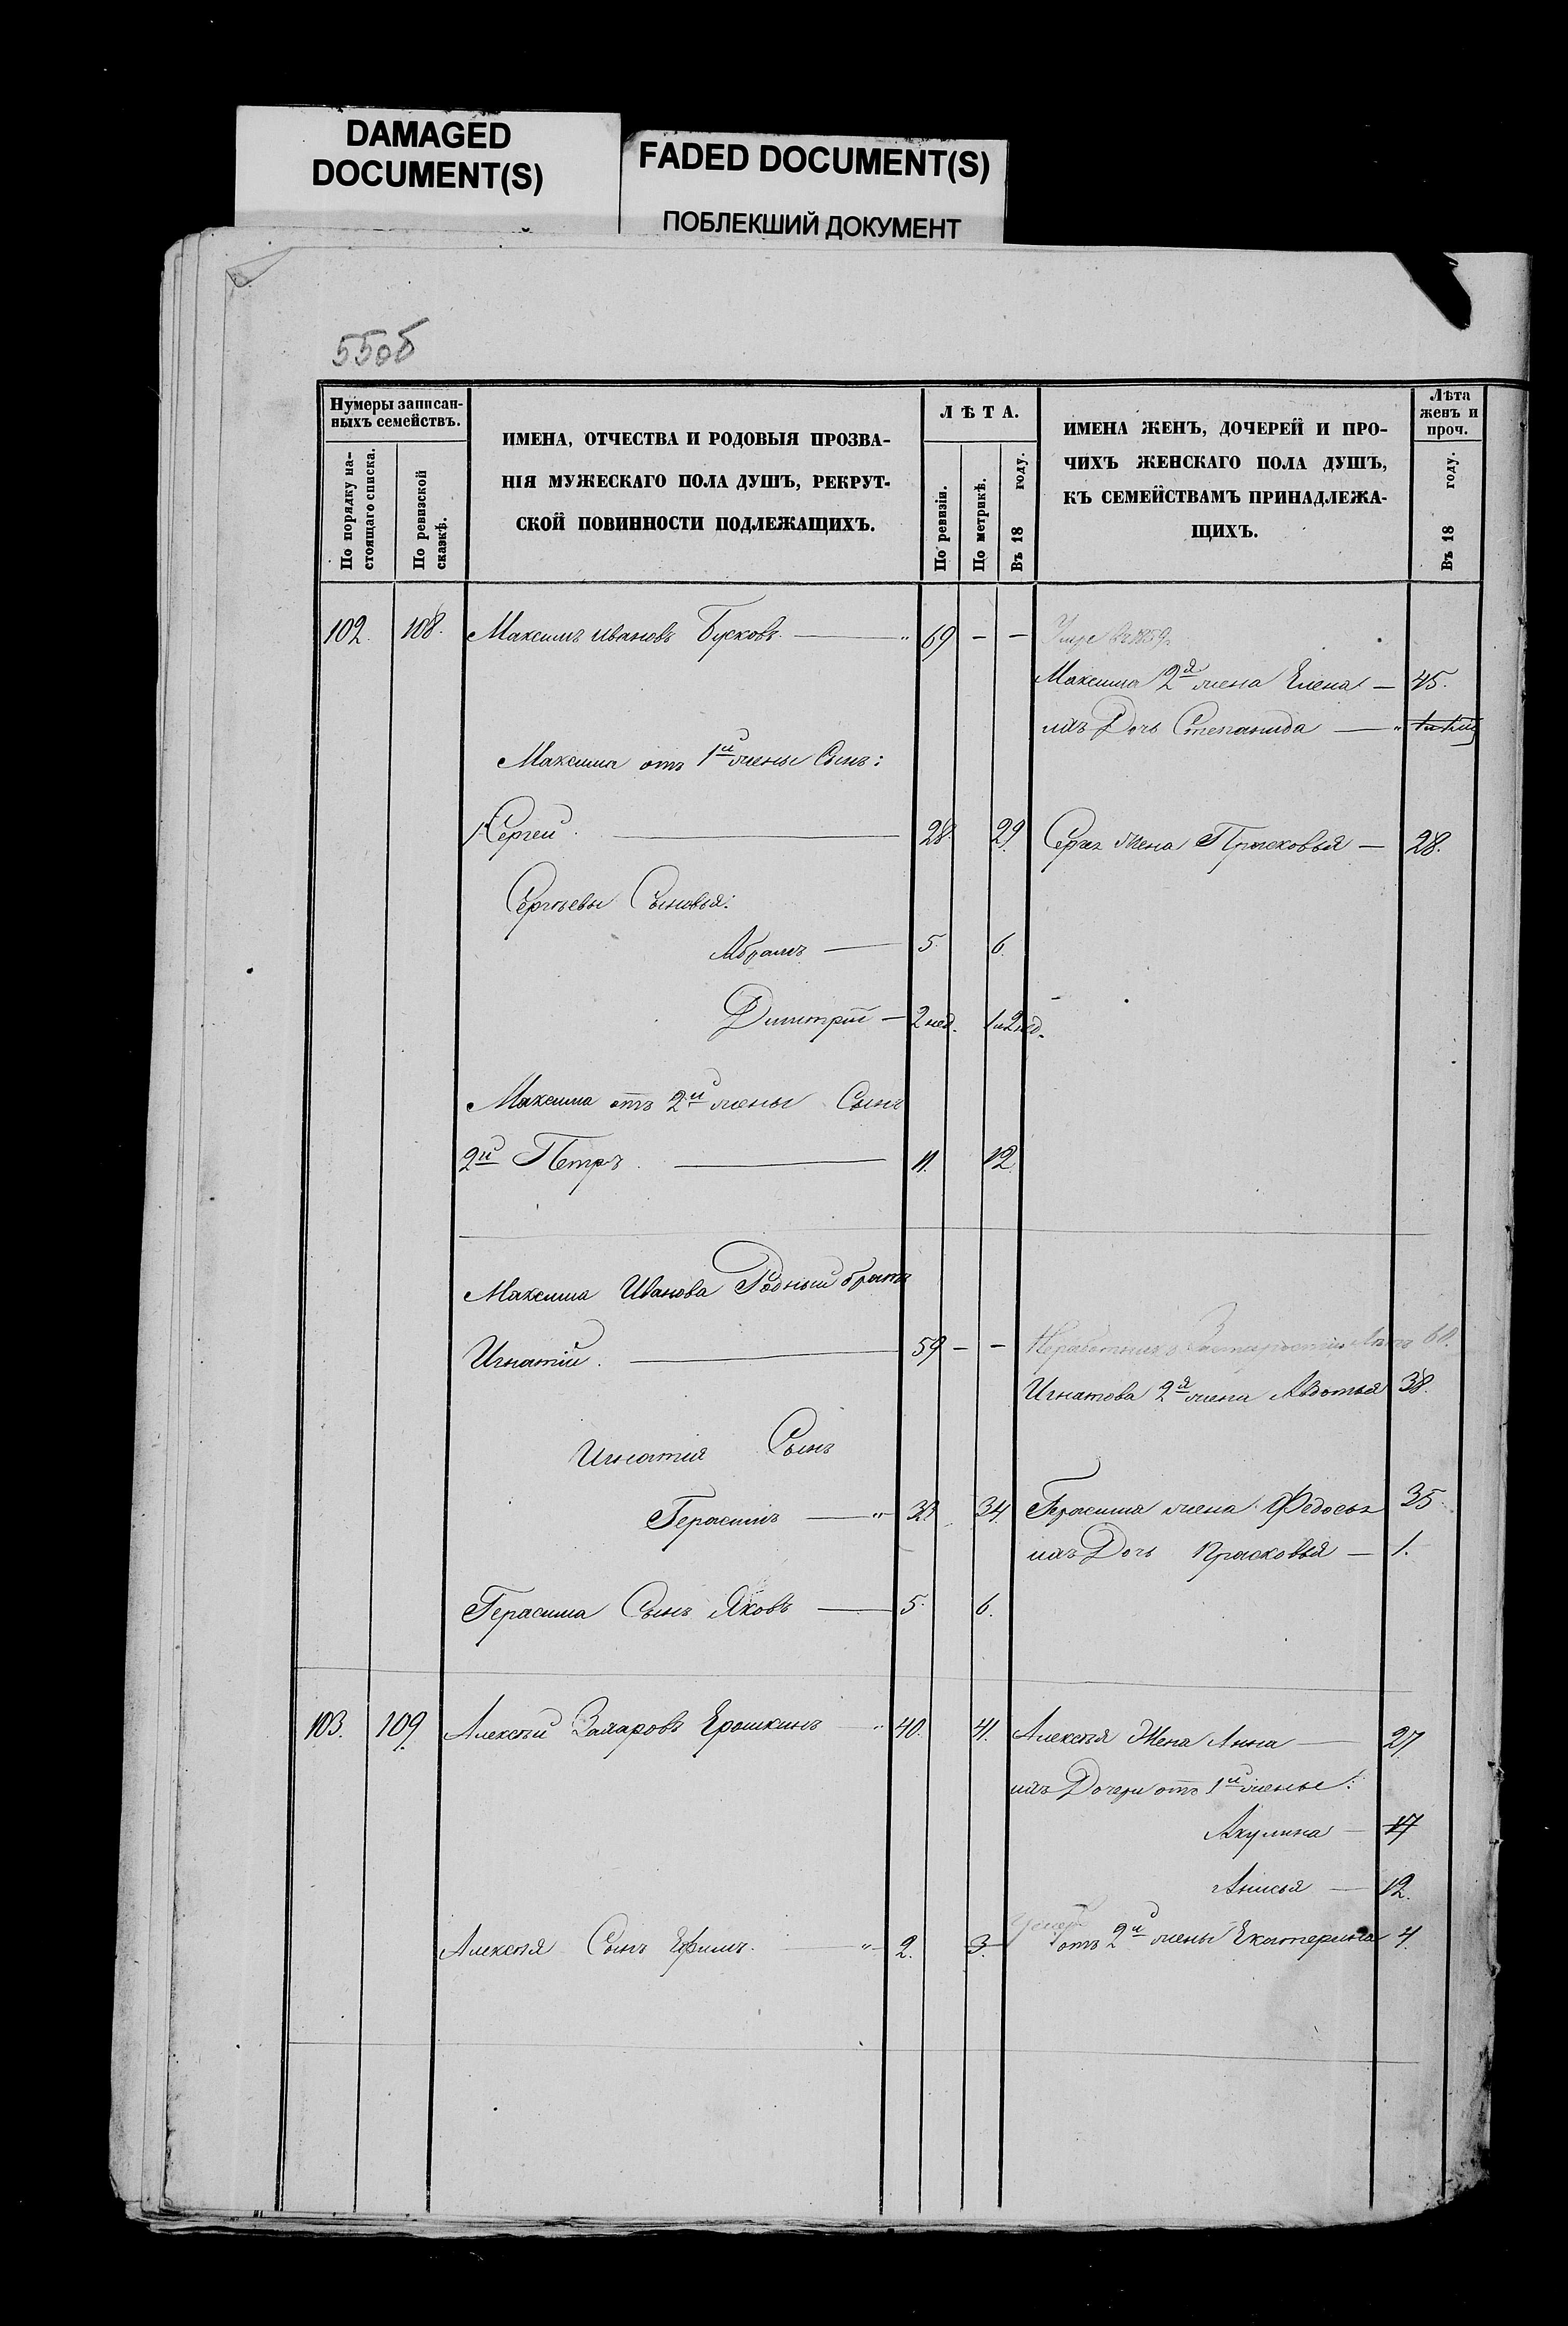 DAMAGED
DOCUMENT(S)
FADED DOCUMENT(S)
ПОБЛЕКШИЙ ДОКУМЕНТ
55об
Нумеры записан-
ныхъ семействъ.
По порядку на-
стоящаго списка.
По ревизской
сказкѣ.
ИМЕНА, ОТЧЕСТВА И РОДОВЫЯ ПРОЗВА-
НІЯ МУЖЕСКАГО ПОЛА ДУШЪ, РЕКРУТ-
СКОЙ ПОВИННОСТИ ПОДЛЕЖАЩИХЪ.
ЛѢТА.
По ревизіи.
По метрикѣ.
Въ 18 году.
ИМЕНА ЖЕНЪ, ДОЧЕРЕЙ И ПРО-
ЧИХЪ ЖЕНСКАГО ПОЛА ДУШЪ,
КЪ СЕМЕЙСТВАМЪ ПРИНАДЛЕЖА-
ЩИХЪ.
Лѣта
женъ и
проч.
Въ 18 году.
102. 108. Максимъ Ивановъ Бусковъ — " 69 – – Умре въ 1859г
Максима 2я жена Елена — 45.
ихъ Дочь Степанида — "
Максима отъ 1й жены Сынъ:
1. Сергей — 28. 29. Сергея жена Прасковья — 28.
Сергѣевы Сыновья:
Абрамъ — 5. 6.
Димитрій — 2 нед. 1 и 2 нед.
Максима отъ 2й жены Сынъ
2й Петръ — 11. 12.
Максима Иванова Родный братъ
Игнатій. — 59 – – 60.
Игнатова 2я жена Авдотья 38.
Игнатія Сынъ
Герасимъ — " 33. 34. Герасима жена Федосья 35.
ихъ Дочь Прасковья — 1.
Герасима Сынъ Яковъ — 5. 6.
103. 109. Алексѣй Захаровъ Ерошкинъ " 40. 41. Алексѣя Жена Анна — 27
ихъ Дочери отъ 1й жены:
Акулина — 17
Анисья — 12.
Умеръ
Алексѣя Сынъ Ефимъ. — " 2. 3. отъ 2й жены Екатерина 4.